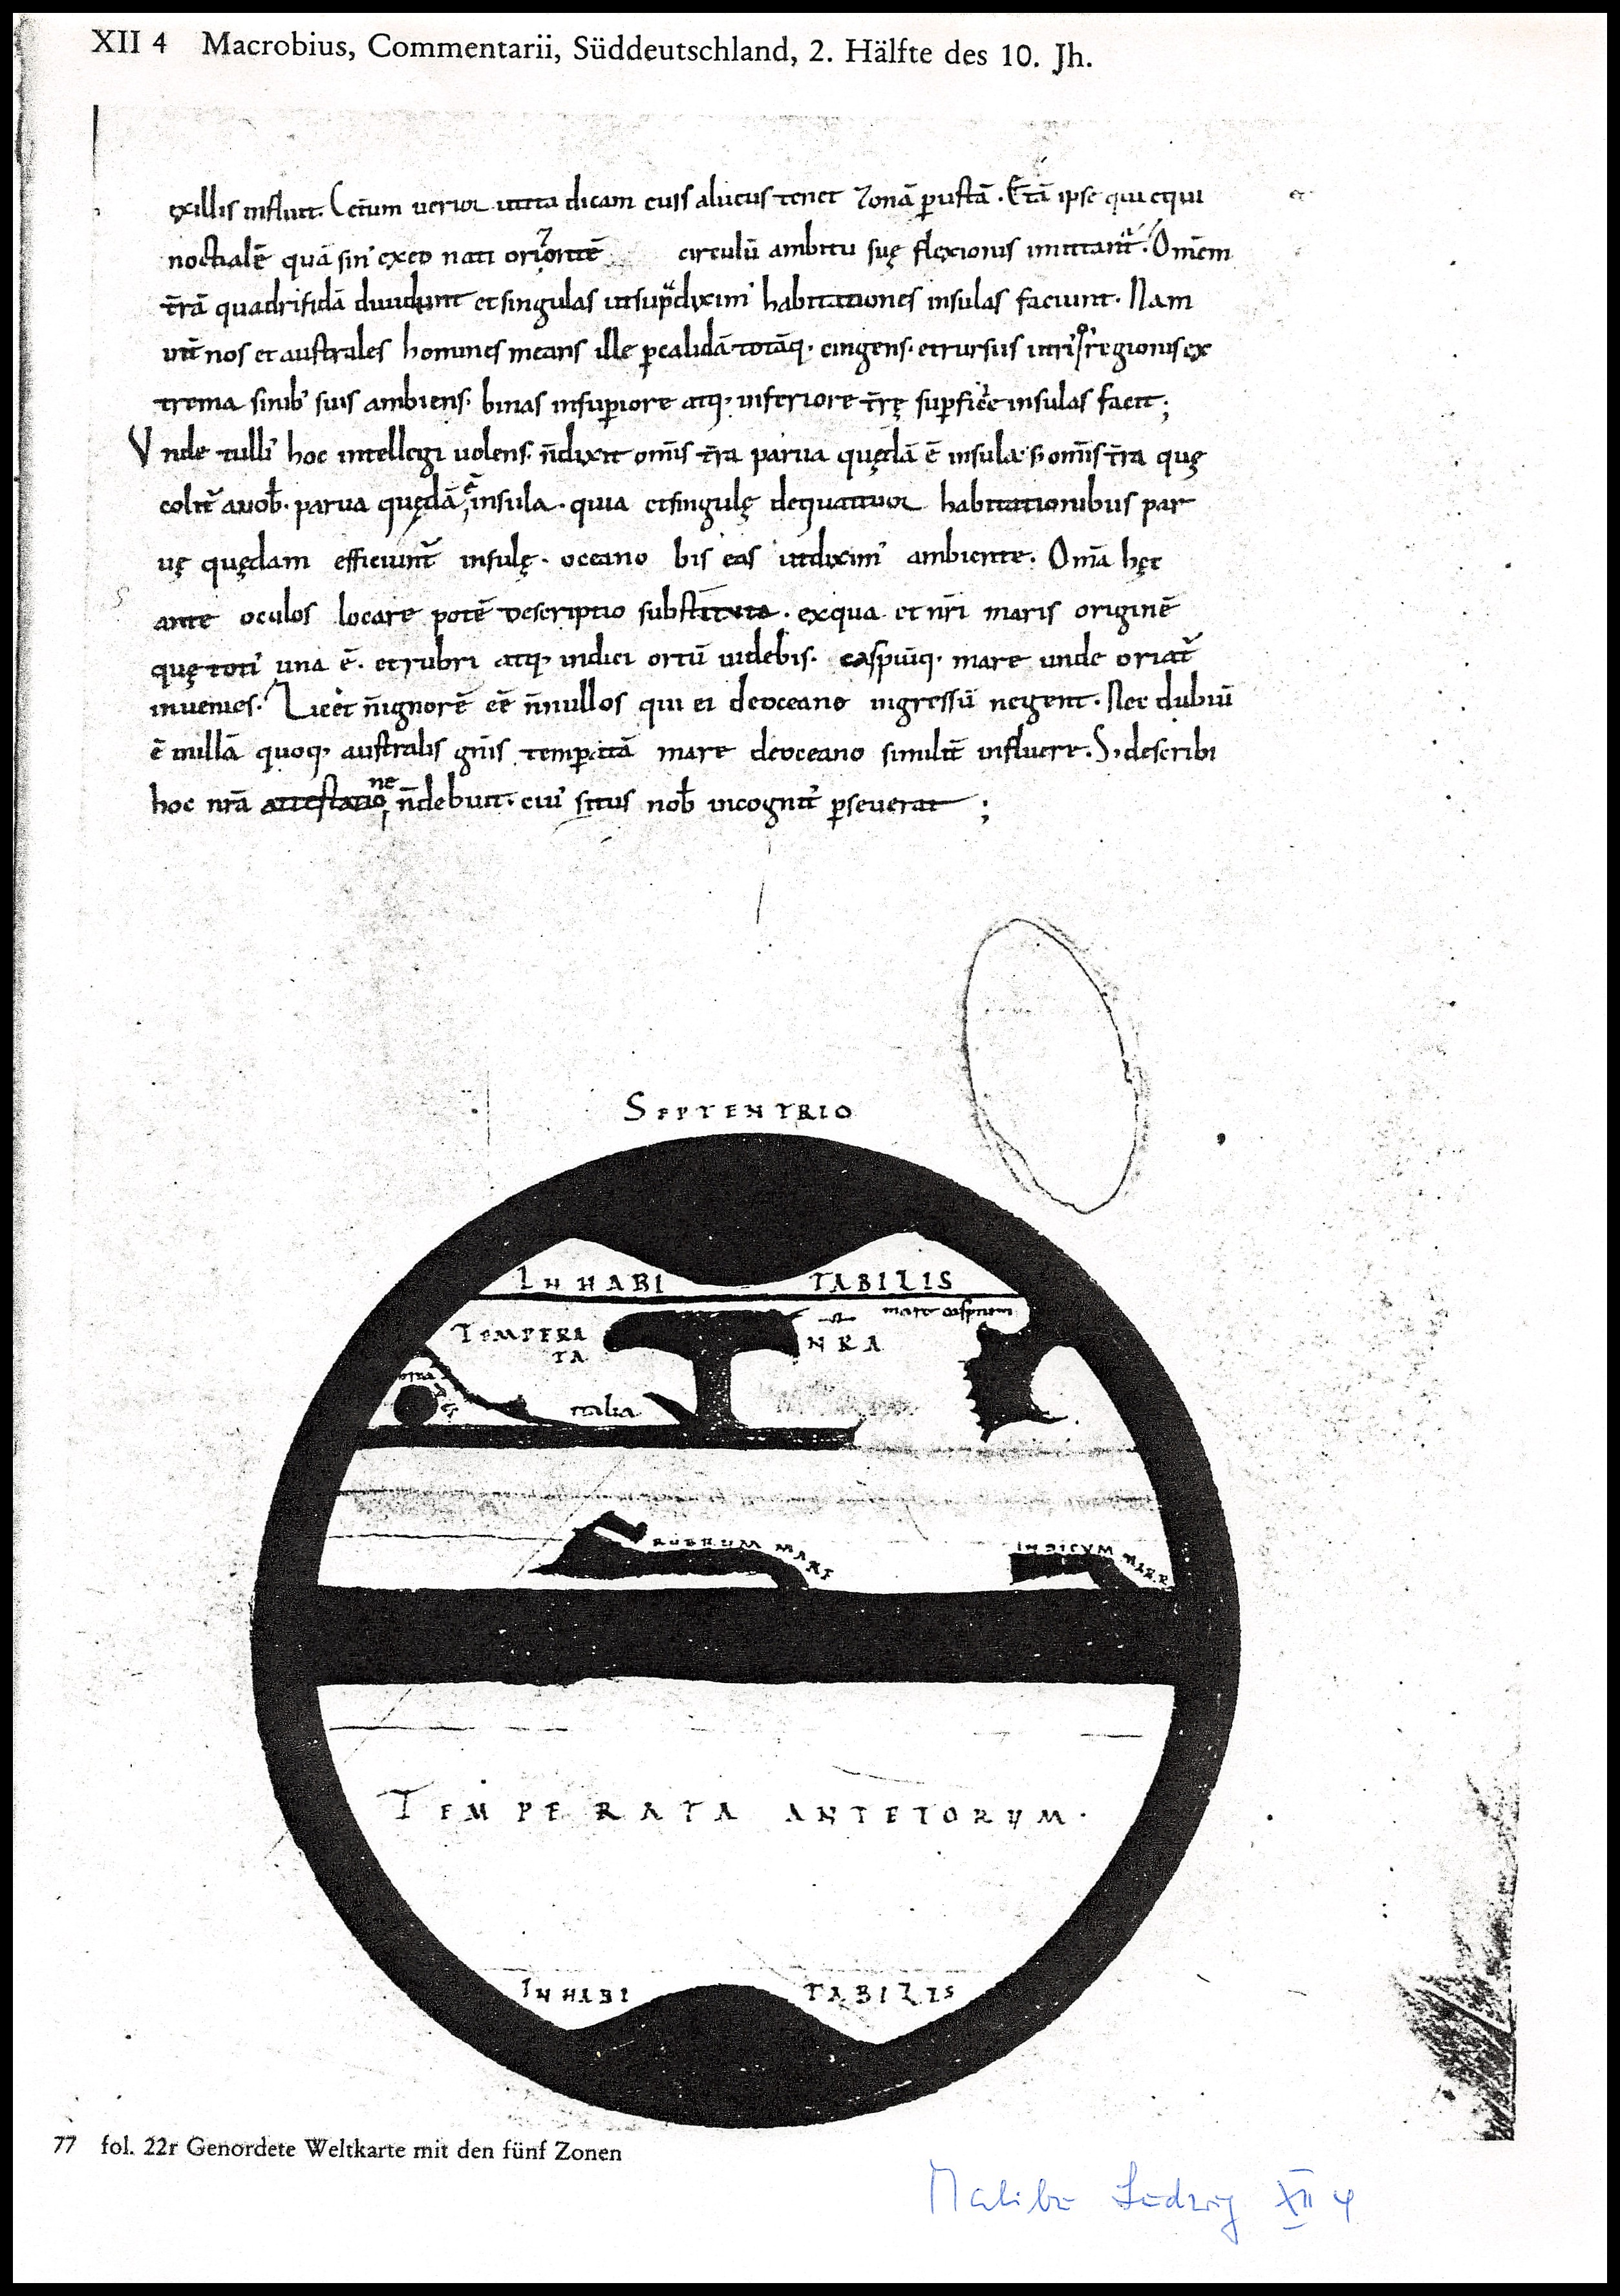 XII 4 Macrobius, Commentarii, Süddeutschland, 2. Hälfte des 10. Jh.
exillis influit. Ceťum uerior ut ita dicam eiuſ alueus tenet Zonā p̱uſtā. Et tā ipse qui equi
noctialē quā sin' exeo nati oriontē circulū ambitu suę flexionis imitant᷑. Omēm
tr̄rā quadrifidā diuidunt et singulas ut supᷓdiximꝰ habitationes insulas faciunt. Nam
int̄ nos et australes homines means ille p̱ calidā totāq. cingens. et rursus utriꝰq regionis ex
trema sinibꝰ suis ambiens. binas insup̱iore atq. inferiore tr̄ę sup̱ficie insulas facit;
Vnde tulliꝰ hoc intellegi uolens. n̄ dixit om̄is tr̄ra parua quędā ē insula. s; om̄is tr̄ra quę
colit᷑ auob̄. parua quędā ē insula. quia et singulę dequattuor habitationibus par
uę quędam efficiunt᷑ insulę. oceano bis eas ut diximꝰ ambiente. Om̄a hęc
ante oculos locare potē descriptio substituta. exqua et nr̄i maris originē
quę totiꝰ una ē. et rubri atq. indici ortū uidebis. caspiūq. mare unde oriat᷑
inuenies. Licet n̄ ignorē eē n̄nullos qui ei deoceano ingressū negent. Nec dubiū
ē inillā quoq. australis gn̄is temp̱atā mare deoceano similit̄ influere. S; describi
hoc nr̄ā attestatione n̄ debuit. cuiꝰ situs nob̄ incognitꝰ p̱seuerat;
SEPTENTRIO
INHABI TABILIS
mare caspium
TEMPERA NRA
TA
italia
RUBRUM MARE INDICVM MARE
TEMPERATA ANTETORVM.
INHABI TABILIS
77 fol. 22r Genordete Weltkarte mit den fünf Zonen
Malibu Ludwig XII 4